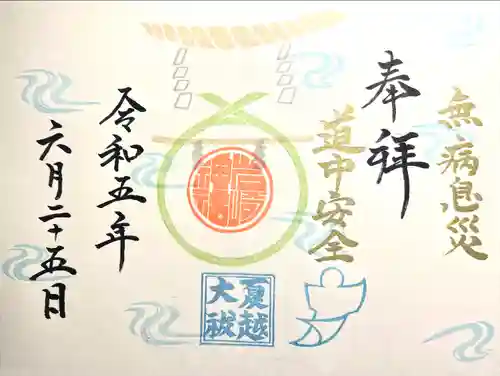 無病息災
奉祥
道中安全
夏越
大祓
令和五年
六月二十五日